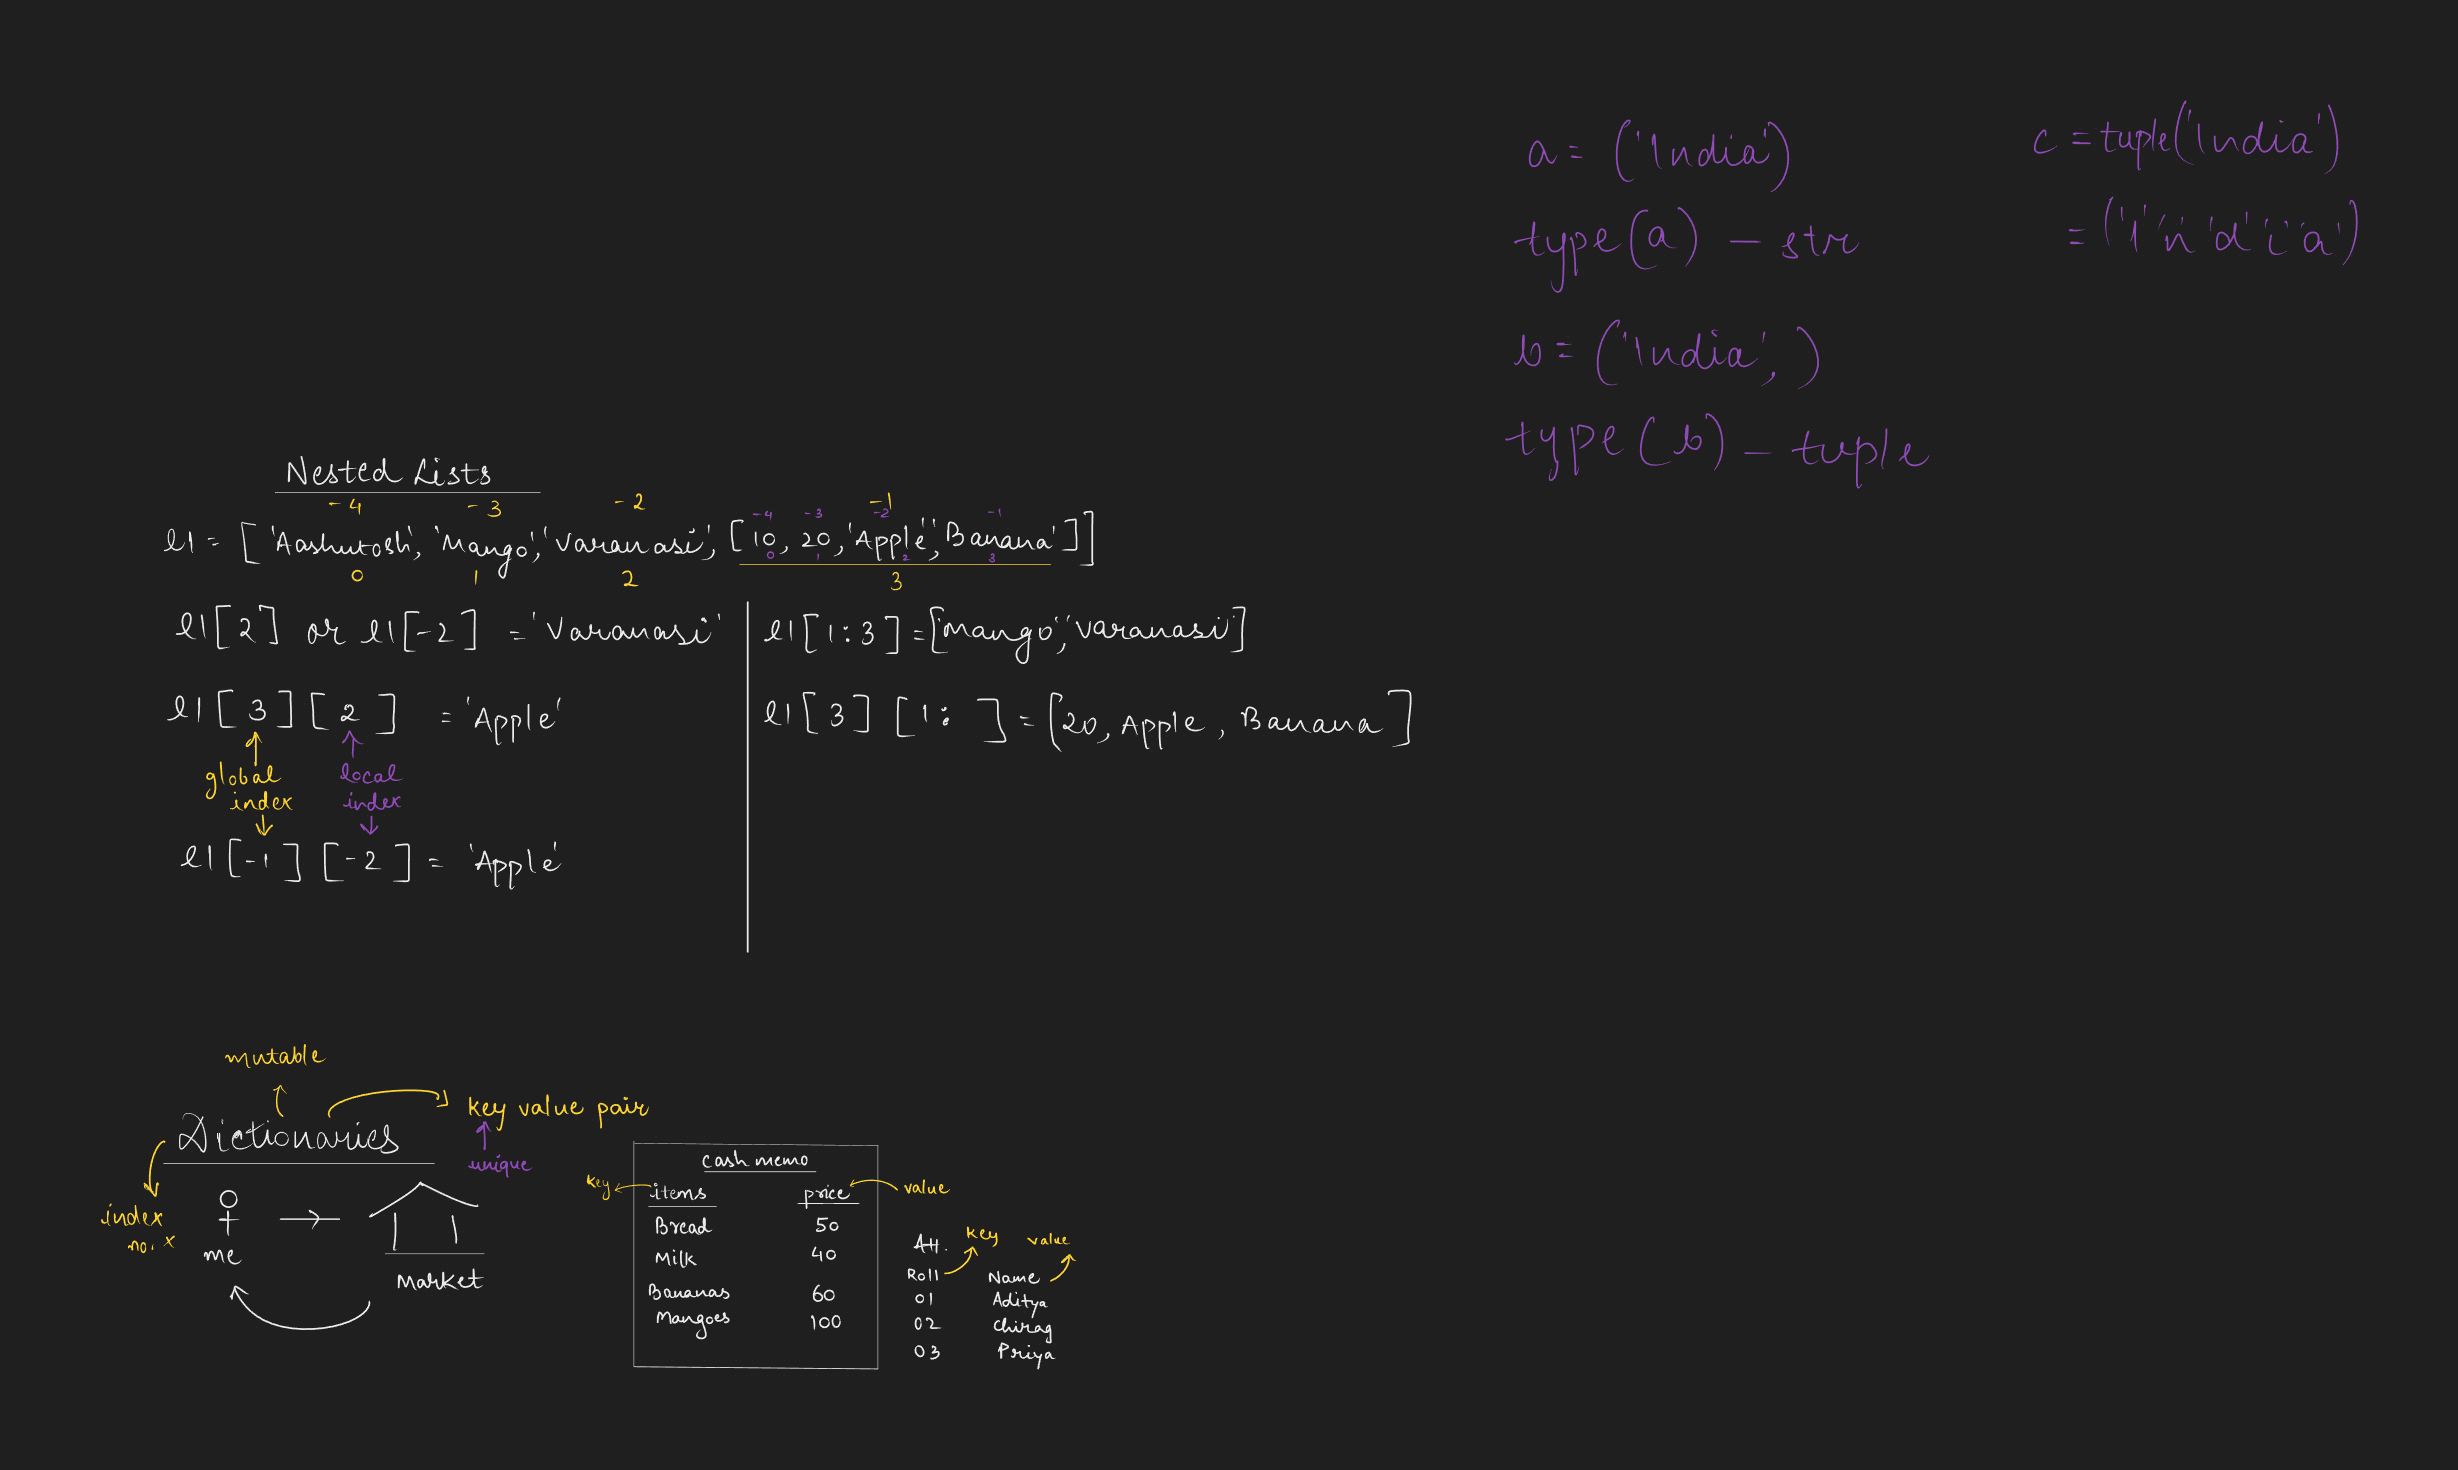 a = ('India')
type(a) - str
b = ('India', )
type(b) - tuple
c = tuple('India')
= ('I' 'n' 'd' 'i' 'a')
Nested Lists
-4 -3 -2 -1
-4 -3 -2 -1
l1 = ['Aashutosh', 'Mango', 'Varanasi', [10, 20, 'Apple', 'Banana']]
0 1 2 3
0 1 2 3
l1[2] or l1[-2] = 'Varanasi'
l1[3][2] = 'Apple'
global index
local index
l1[-1][-2] = 'Apple'
l1[1:3] = ['Mango', 'Varanasi']
l1[3][1: ] = [20, Apple, Banana]
mutable
key value pair
Dictionaries
unique
index no. x
me
Market
cash memo
key items price value
Bread 50
Milk 40
Bananas 60
Mangoes 100
Att. key value
Roll Name
01 Aditya
02 Chirag
03 Priya